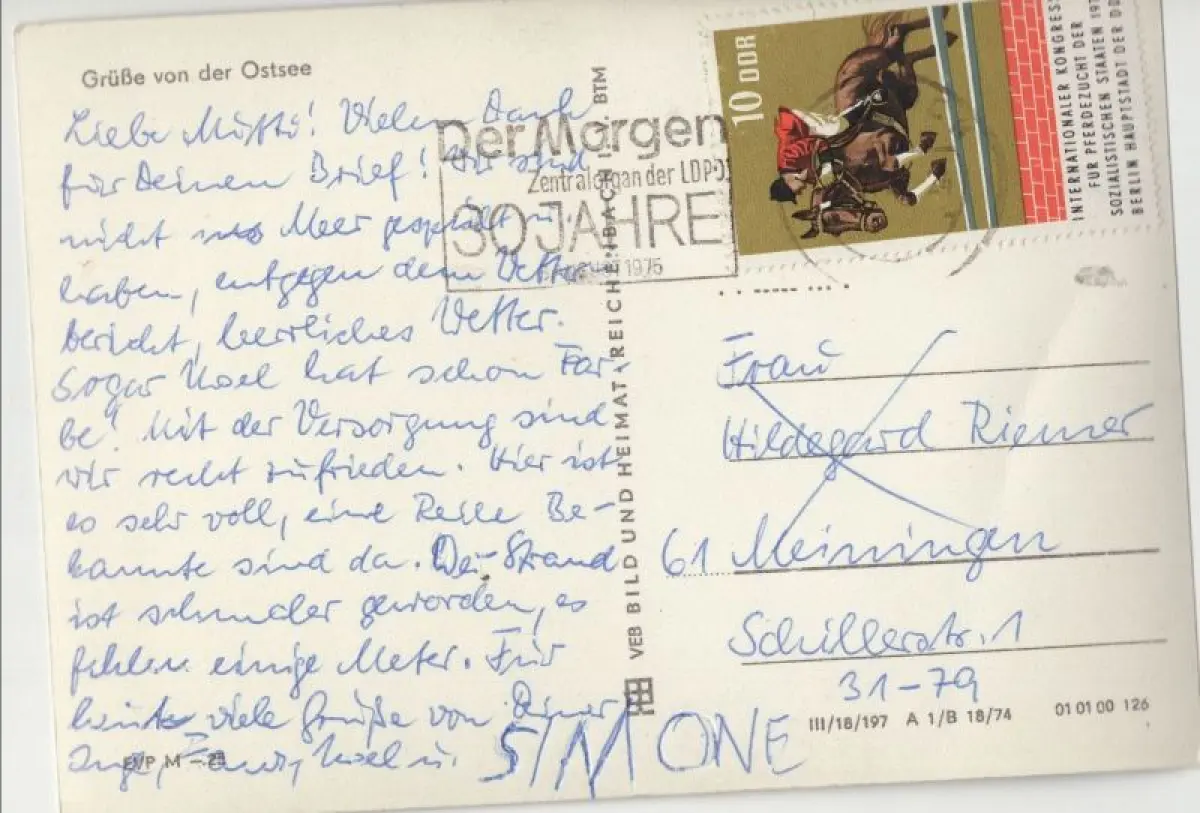 Grüße von der Ostsee
Liebe Mutti! Vielen Dank
für Deinen Brief! Wir sind
nicht ins Meer gespült u.
haben, entgegen dem Wetter
bericht, herrliches Wetter.
Sogar Axel hat schon Far-
be! Mit der Versorgung sind
wir recht zufrieden. Hier ist
es sehr voll, eine Reihe Be-
kannte sind da. Der Strand
ist schmaler geworden, es
fehlen einige Meter. Für
heute viele Grüße von Deiner
Inge, Axel u. SIMONE
EVP M -.25
Der Morgen
Zentralorgan der LDPD
30 JAHRE
1975
VEB BILD UND HEIMAT REICHENBACH I. V. BTM
10 DDR
INTERNATIONALER KONGRESS
FÜR PFERDEZUCHT DER
SOZIALISTISCHEN STAATEN 197
BERLIN HAUPTSTADT DER DD
Frau
Hildegard Riemer
61 Meiningen
Schillerstr. 1
31-79
III/18/197 A 1/B 18/74 01 01 00 126